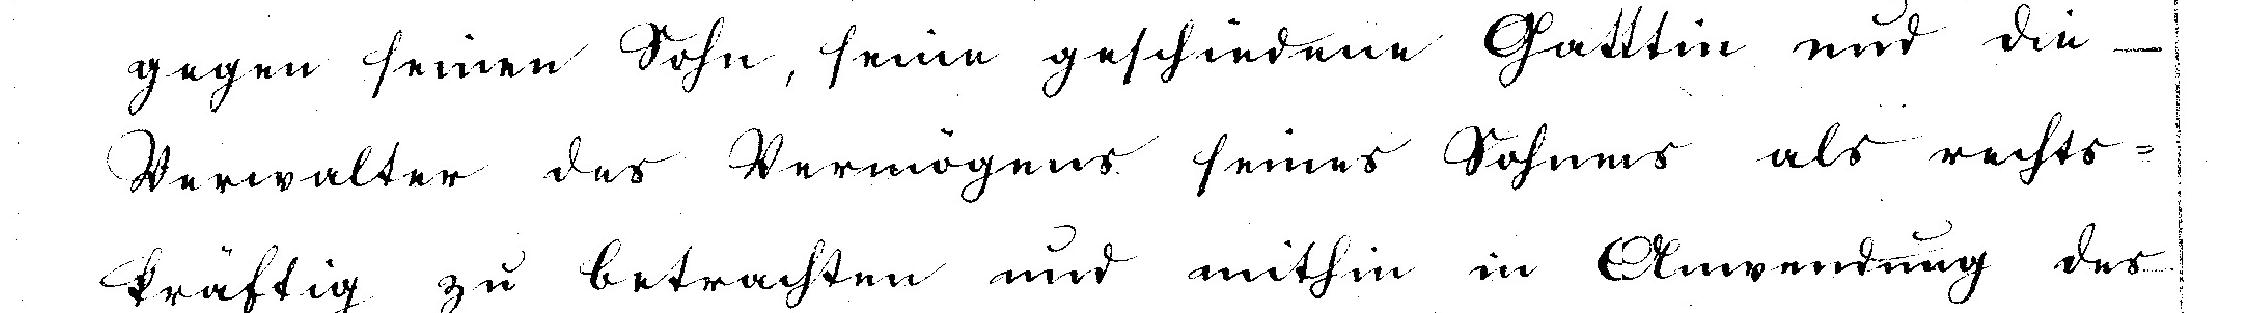 gegen seinen Sohn, seine geschiedene Gatttin und die —
Verwalter des Vermögens seines Sohnes als rechts=
kräftig zu betrachten und mithin in Anwendung des